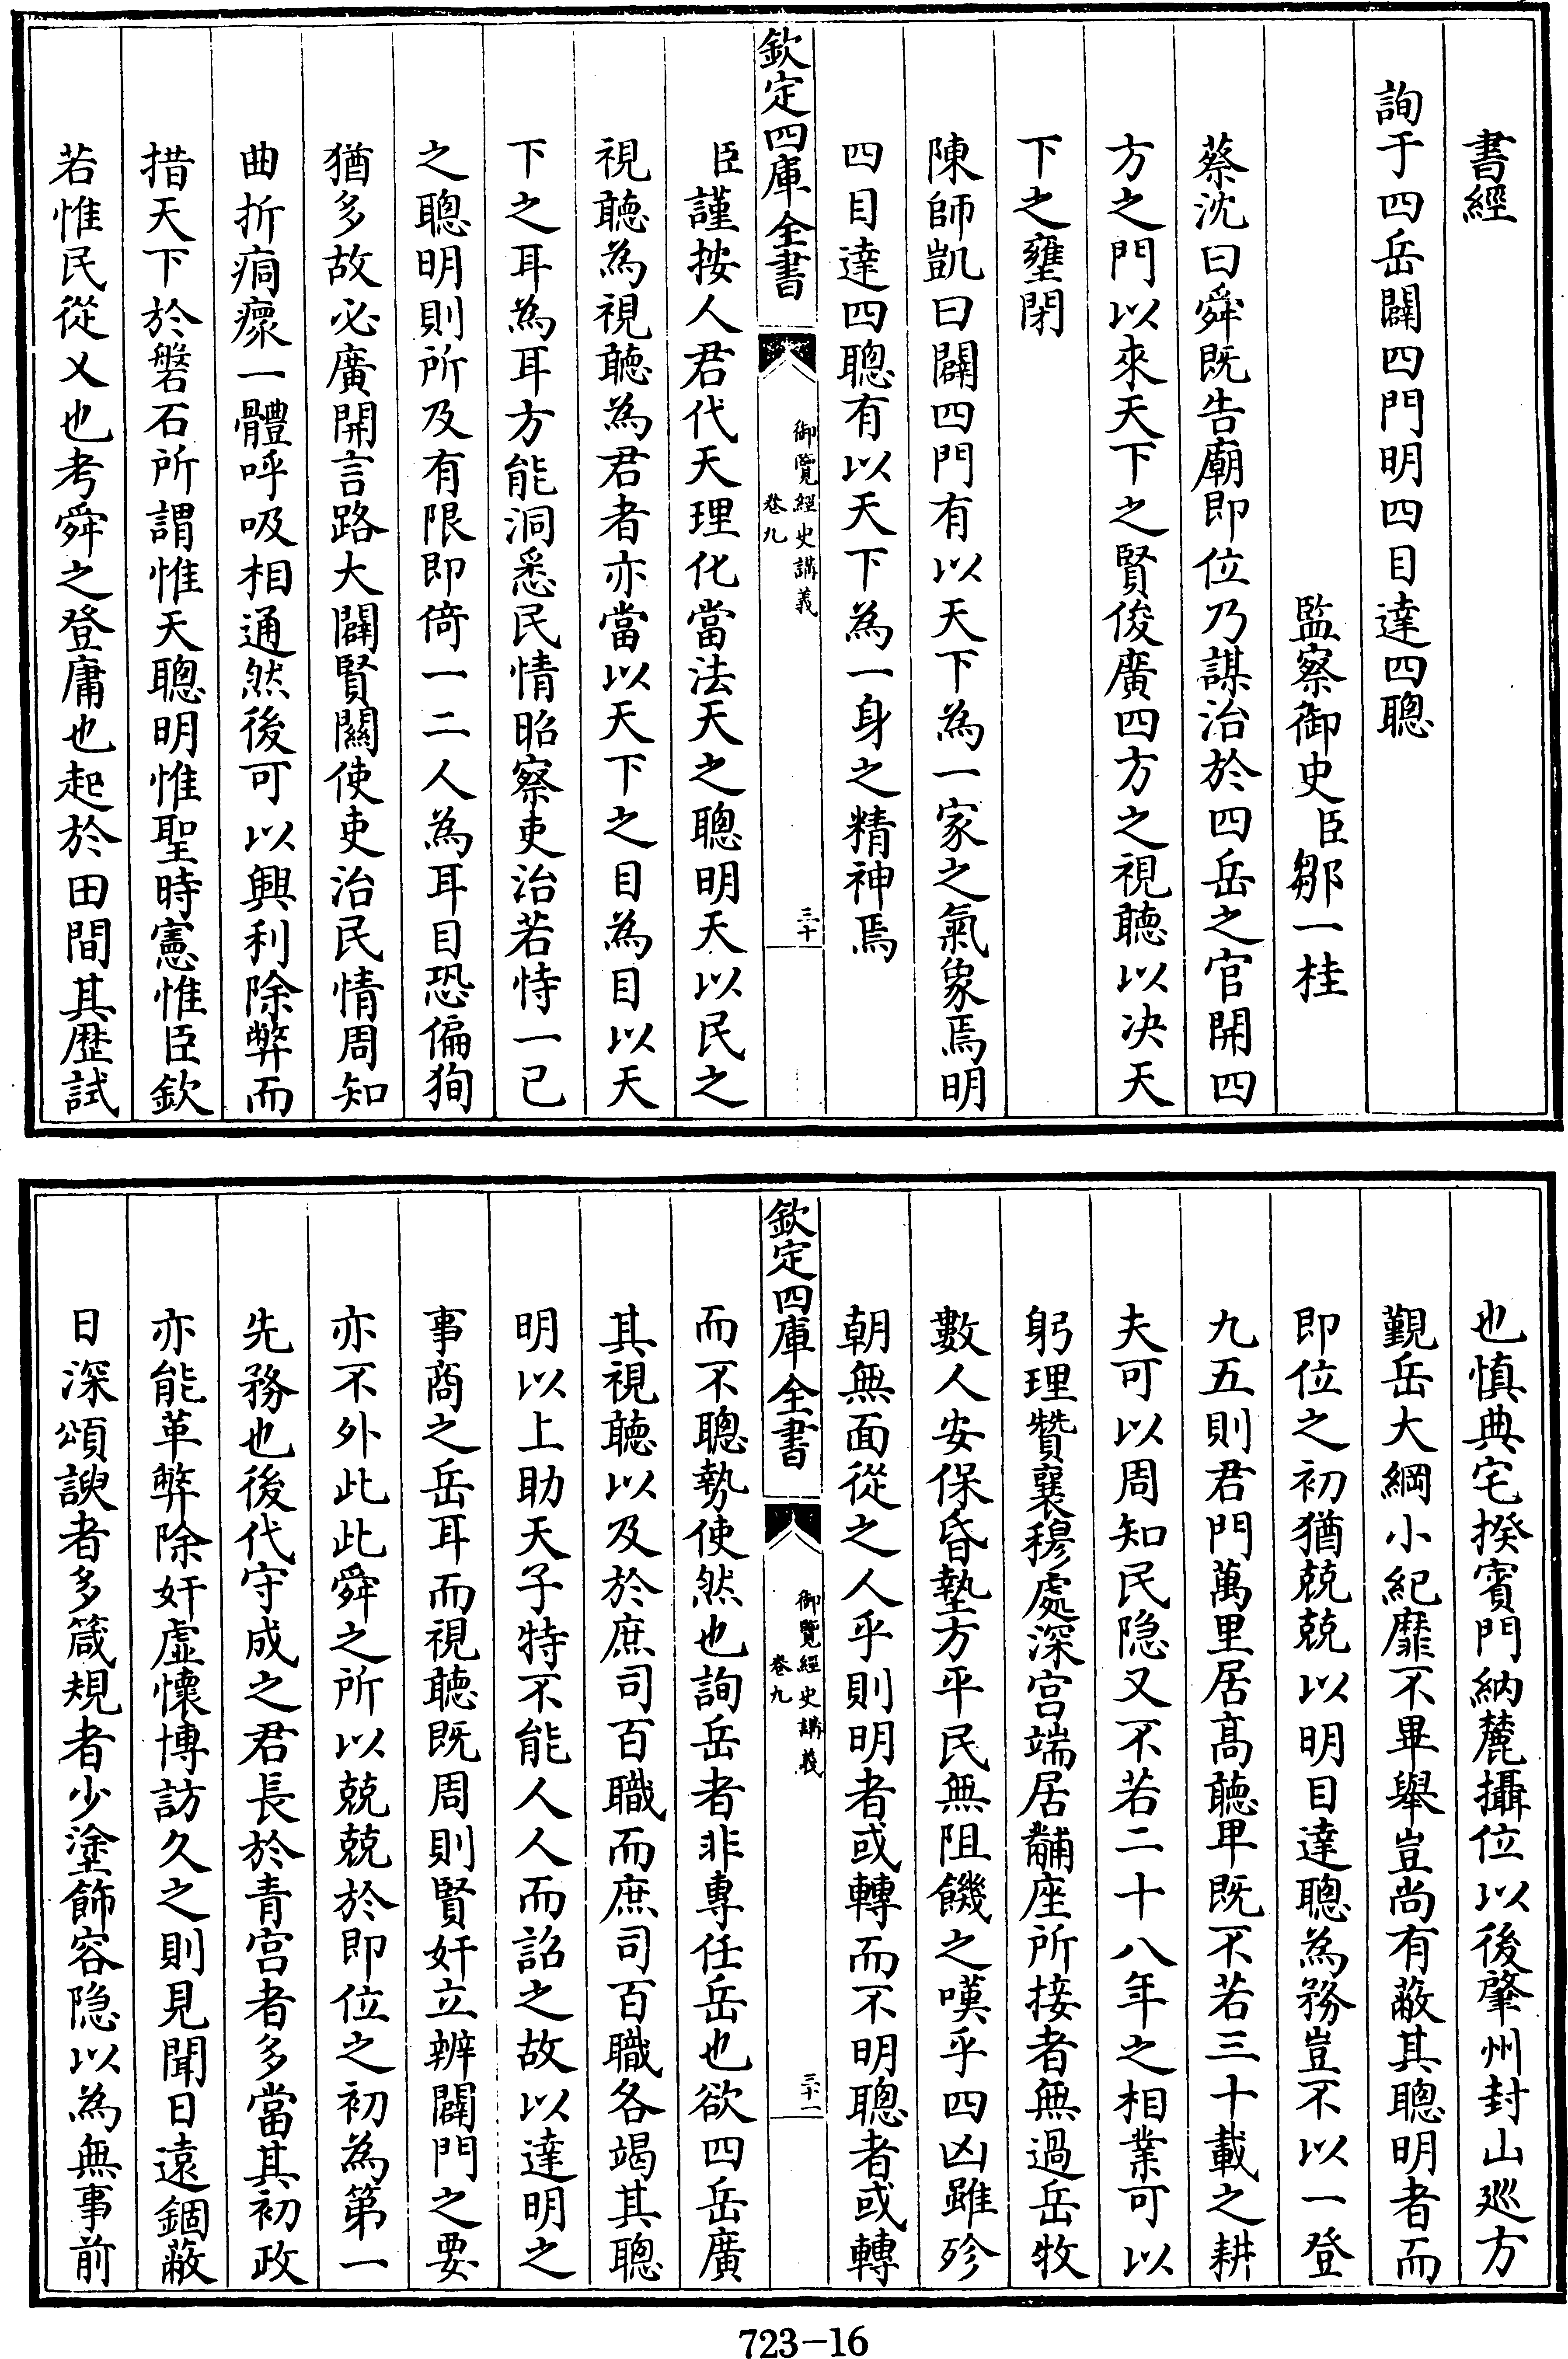 書經
詢于四岳闢四門明四目達四聰
監察御史臣鄒一桂
蔡沈曰舜既告廟即位乃謀治於四岳之官開四
方之門以來天下之賢俊廣四方之視聽以決天
下之壅閉
陳師凱曰闢四門有以天下為一家之氣象焉明
四目達四聰有以天下為一身之精神焉
欽定四庫全書
御覽經史講義
卷九
三十
臣謹按人君代天理化當法天之聰明天以民之
視聽為視聽為君者亦當以天下之目為目以天
下之耳為耳方能洞悉民情昭察吏治若恃一已
之聰明則所及有限即倚一二人為耳目恐偏狥
猶多故必廣開言路大闢賢關使吏治民情周知
曲折痌瘝一體呼吸相通然後可以興利除弊而
措天下於磐石所謂惟天聰明惟聖時憲惟臣欽
若惟民從乂也考舜之登庸也起於田間其歷試
也慎典宅揆賓門納麓攝位以後肇州封山廵方
覲岳大綱小紀靡不畢舉豈尚有蔽其聰明者而
即位之初猶兢兢以明目達聰為務豈不以一登
九五則君門萬里居高聽卑既不若三十載之耕
夫可以周知民隐又不若二十八年之相業可以
躬理贊襄穆處深宮端居黼座所接者無過岳牧
數人安保昏墊方平民無阻饑之嘆乎四凶雖殄
朝無面從之人乎則明者或轉而不明聰者或轉
欽定四庫全書
御覽經史講義
卷九
三十一
而不聰勢使然也詢岳者非專任岳也欲四岳廣
其視聽以及於庶司百職而庶司百職各竭其聰
明以上助天子特不能人人而詔之故以達明之
事商之岳耳而視聽既周則賢奸立辨闢門之要
亦不外此此舜之所以兢兢於即位之初為第一
先務也後代守成之君長於青宮者多當其初政
亦能革弊除奸虛懷博訪久之則見聞日遠錮蔽
日深頌諛者多箴規者少塗飾容隐以為無事前
723-16